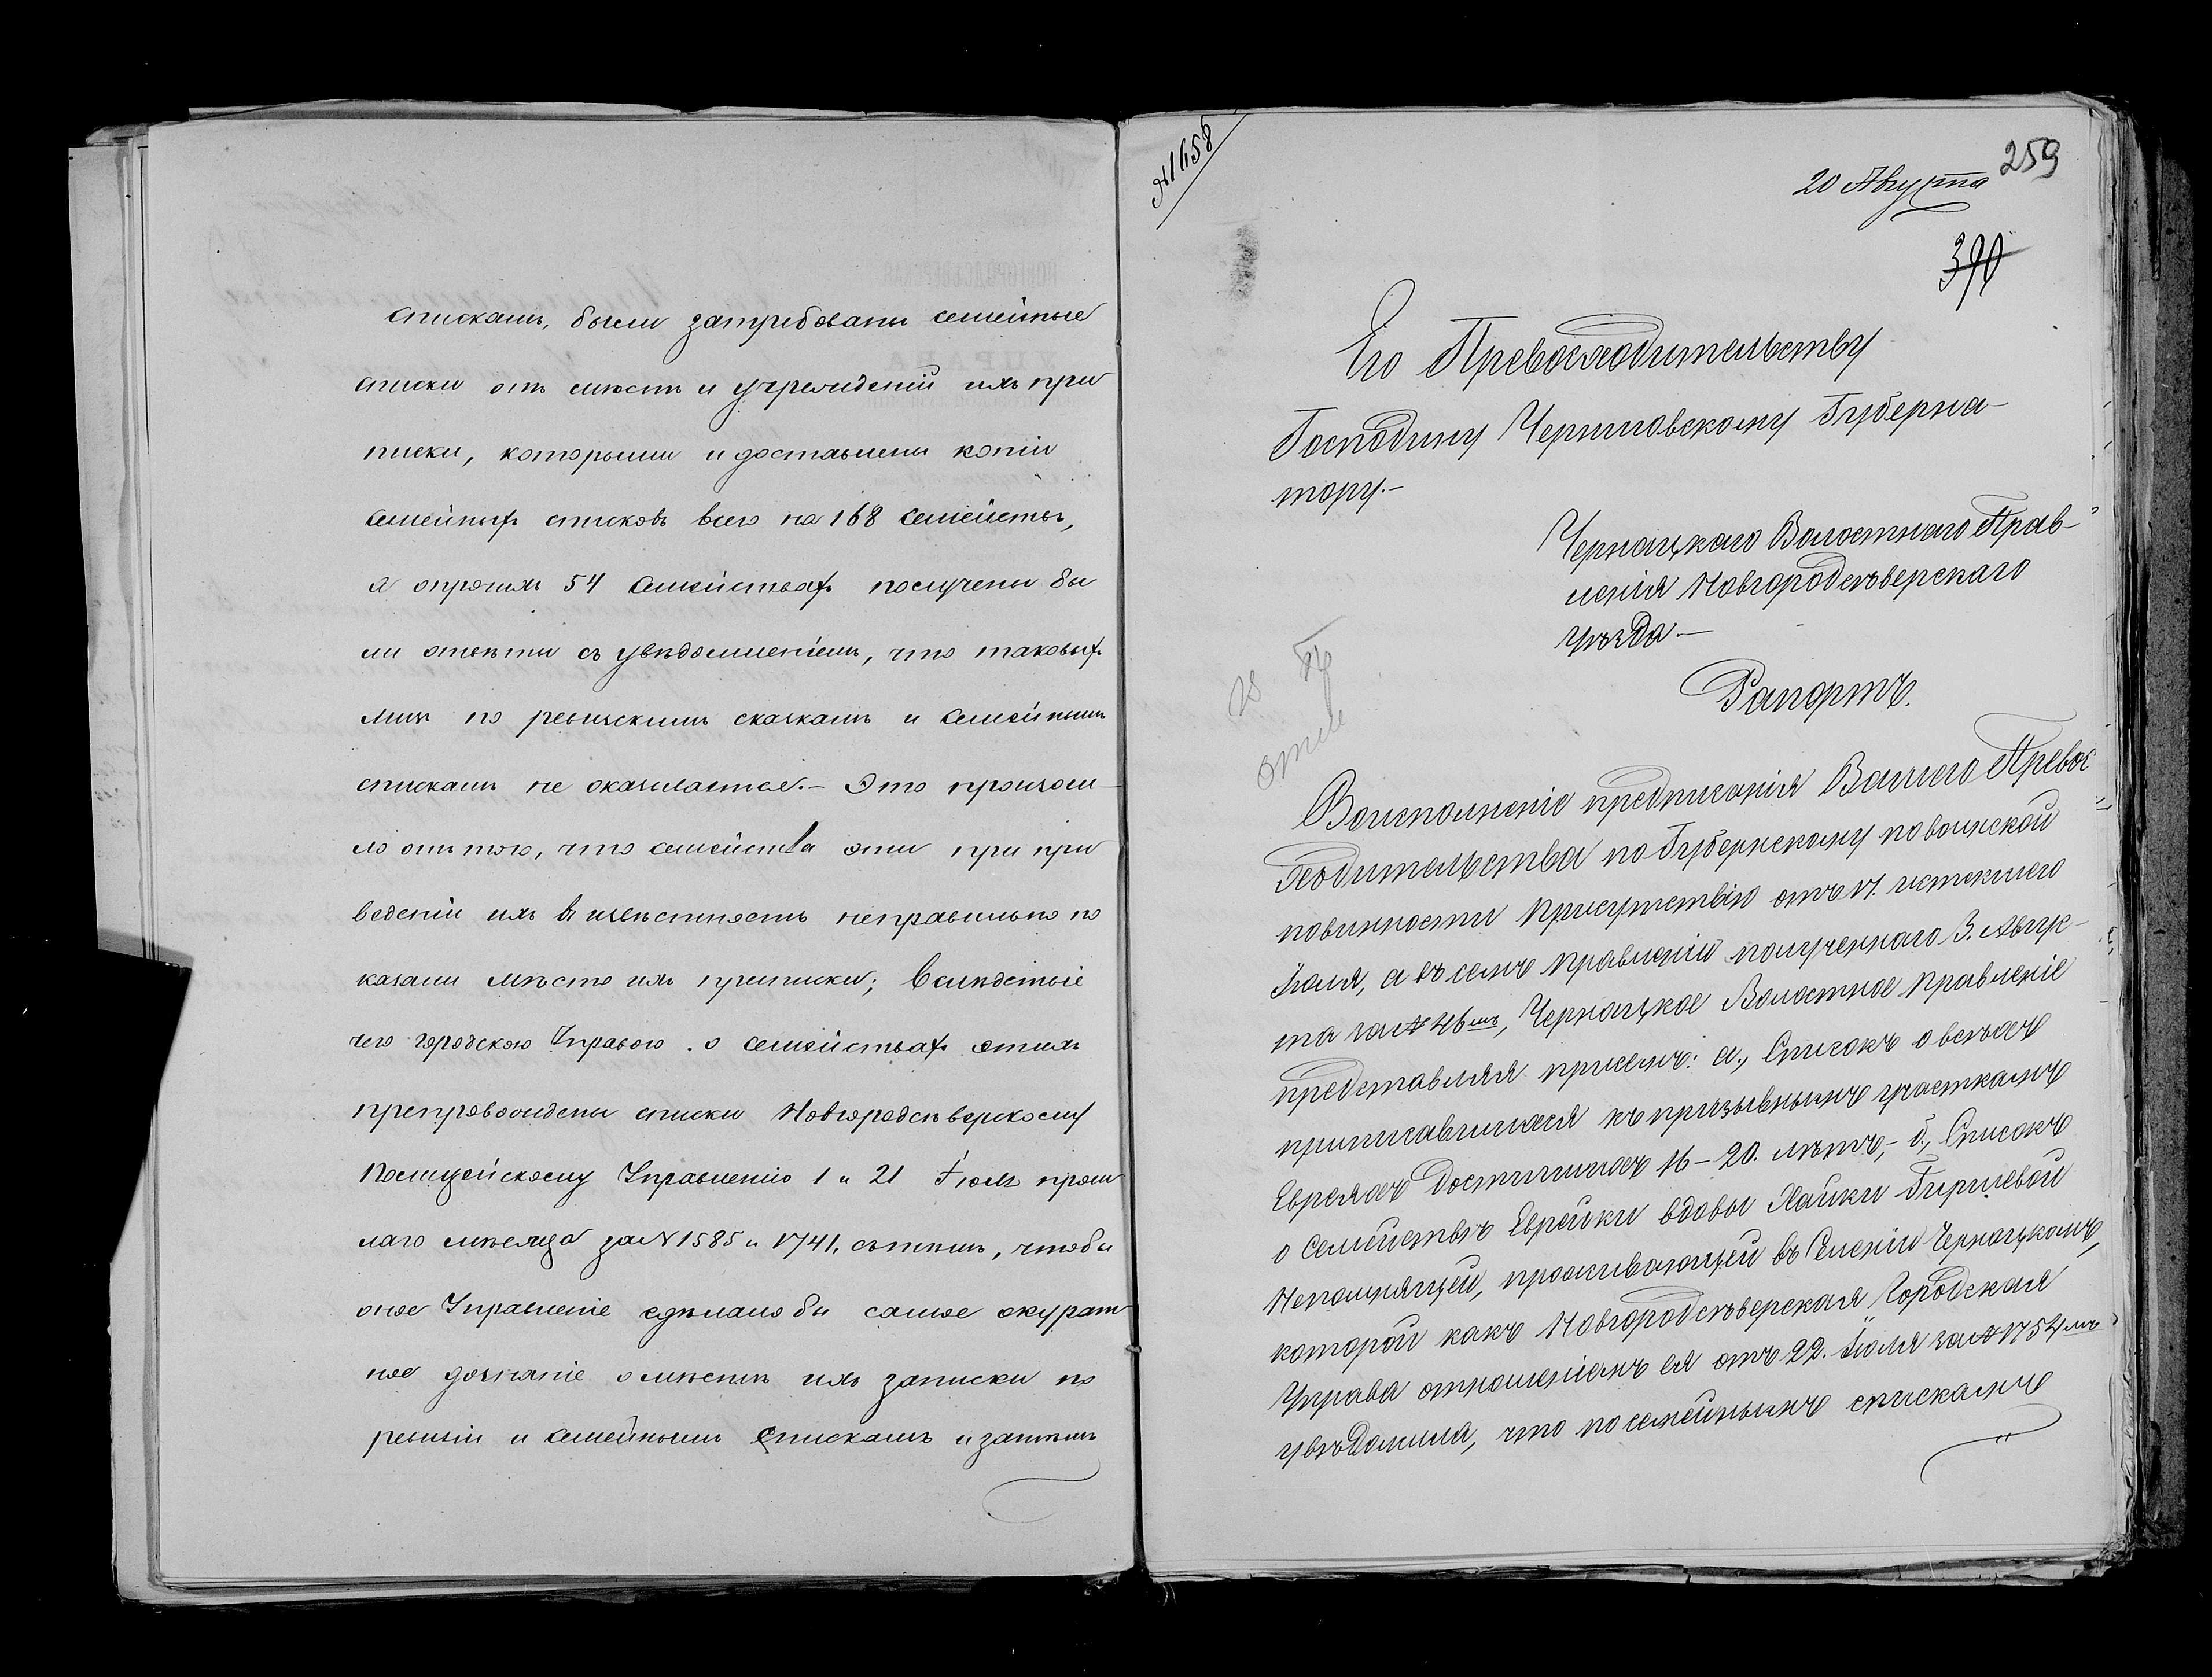 спискамъ, были затребованы семейные
списки отъ мѣстъ и учрежденій ихъ при
писки, которыми и доставлены копіи
семейныхъ списковъ всего на 168 семействъ,
а опрочихъ 54 семействахъ получены бы
ли отвѣты съ увѣдомленіемъ, что таковыхъ
лицъ по ревизскимъ сказкамъ и семейнымъ
спискамъ не оказывается.– Это произош–
ло отъ того, что семейства эти при при
веденіи ихъ въ извѣстность неправильно по
казали мѣсто ихъ приписки; вслѣдствіе
чего городскою Управою о семействахъ этихъ
препровождены списки Новгородсѣверскому
Полицейскому Управленію 1 и 21 Іюля прош
лаго мѣсяца за N 1585 и 1741, сътѣмъ, чтобы
оное Управленіе сдѣлало бы самое акурат
ное дознаніе о мѣстѣ ихъ записки по
ревизіи и семейнымъ спискамъ и затѣмъ
N 1658
20 Августа
259
390
Его Превосходительству
Господину Черниговскому Губерна–
тору.–
Чернацкаго Волостнаго Прав–
ленія Новгородсѣверскаго
уѣзда –
Рапортъ.
Воисполненіе предписанія Вашего Превос
ходительства по Губернскому по воинской
повинности присутствію отъ 17. истекшего
Іюля, а въ семъ правленіи полученнаго 3. Авгус–
та за N 46мъ, Чернацкое Волостное правленіе
представляя присемъ: а., Списокъ о всѣхъ
приписавшихся къ призывнымъ участкамъ
Евреяхъ достигшихъ 16–20. лѣтъ,– б., Списокъ
о семействѣ Еврейки вдовы Хайки Гиршевой
Непомнящей, проживающей въ Селеніи Чернацкомъ,
которой какъ Новгородсѣверская Городская
Управа отношеніемъ ея отъ 22. Іюля за N 1754мъ
увѣдомила, что по семейнымъ спискамъ